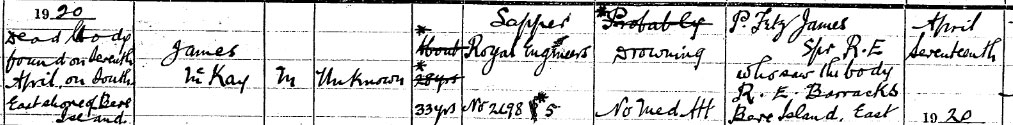 1920
Dead body
found on Seventh
April, on South
East shore of Bere
Island.
James
McKay
M
Unknown
* About
* 28yrs
33yrs
Sapper
Royal Engineers
No 2698 * 5
* Probably
Drowning
No Med Att
P. Fitz James
Spr R.E
who saw the body
R.E. Barracks
Bere Island, East
April
Seventeenth
1920